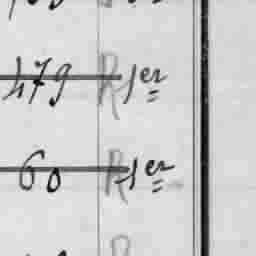 479 R 1er
60 R 1er